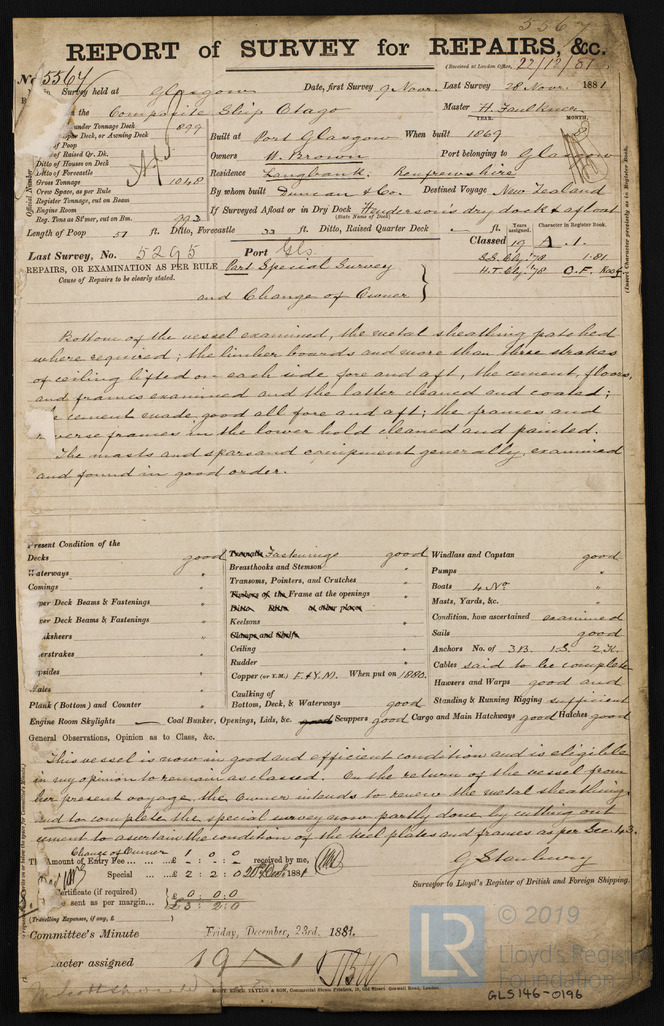 5567
REPORT of SURVEY for REPAIRS, &c.
(Received at London Office, 22/12/81)
No 5567
Survey held at Glasgow Date, first Survey 9 Novr. Last Survey 28 Novr. 1881
on the Composite Ship Otago Master H. Faulkner
under Tonnage Deck 899
Deck, or Awning Deck
of Poop
of Raised Qr. Dk.
Ditto of Houses on Deck
Ditto of Forecastle
Gross Tonnage 1048
Crew Space, as per Rule
Register Tonnage, cut on Beam
Engine Room
Reg. Tons as St'mer, cut on Bm. 993
Official Number
YEAR. MONTH
Built at Port Glasgow When built 1869 8
Owners W. Brown Port belonging to Glasgow
Residence Langbank. Renfrewshire
By whom built Duncan & Co. Destined Voyage New Zealand
If Surveyed Afloat or in Dry Dock Henderson's dry dock & afloat
(State Name of Dock)
Length of Poop 51 ft. Ditto, Forecastle 33 ft. Ditto, Raised Quarter Deck - ft.
Years assigned. Character in Register Book.
Classed 19 A. 1.
S.S. Cly. '78 1.81
H.T. Cly. '78 O.F.
Last Survey, No. 5295 Port Gls.
REPAIRS, OR EXAMINATION AS PER RULE Part Special Survey
Cause of Repairs to be clearly stated.
and Change of Owner
(Insert Character precisely as in Register Book.)
Bottom of the vessel examined, the metal sheathing patched
where required; the limber boards and more than three strakes
of ceiling lifted on each side fore and aft, the cement, floors,
and frames examined and the latter cleaned and coated;
cement made good all fore and aft; the frames and
reverse frames in the lower hold cleaned and painted.
The masts and spars and equipment generally, examined
and found in good order.
Present Condition of the
Decks good
Waterways "
Comings "
Upper Deck Beams & Fastenings "
Lower Deck Beams & Fastenings "
"
"
"
"
Plank (Bottom) and Counter "
Treenails Fastenings good
Breasthooks and Stemson "
Transoms, Pointers, and Crutches "
Timbers of the Frame at the openings "
Ditto Ditto at other places
Keelsons "
Clamps and Shelfs
Ceiling "
Rudder "
Copper (or Y.M.) F. & Y.M. When put on 1880.
Caulking of
Bottom, Deck, & Waterways good
Windlass and Capstan good
Pumps "
Boats 4 No. "
Masts, Yards, &c. "
Condition, how ascertained examined
Sails good
Anchors No. of 3.B. 1.S. 2.K.
Cables said to be complete
Hawsers and Warps good and
Standing & Running Rigging sufficient
Engine Room Skylights — Coal Bunker, Openings, Lids, &c. good Scuppers good Cargo and Main Hatchways good Hatches good
General Observations, Opinion as to Class, &c.
This vessel is now in good and efficient condition and is eligible
in my opinion to remain as classed. On the return of the vessel from
her present voyage, the owner intends to renew the metal sheathing
and to complete the special survey now partly done by cutting out
cement to ascertain the condition of the keel plates and frames as per Sec. 43.
Change of Owner
Amount of Entry Fee ... £ 1 : 0 : 0 received by me,
Special ... £ 2 : 2 : 0 20th Dec. 1881
Certificate (if required) £ 0 : 0 : 0
sent as per margin... £ 3 : 2 : 0
(Travelling Expenses, if any, £ )
G Stanbury
Surveyor to Lloyd's Register of British and Foreign Shipping.
Committee's Minute Friday, December, 23rd. 1881.
Character assigned 19 A 1
TAYLOR & SON, Commercial Steam Printers, London.
LR
© 2019
Lloyd's Register
Foundation
GLS146-0196